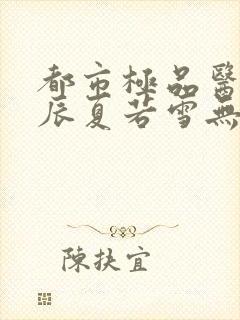 都市極品醫
辰夏若雪無
陳扶宜